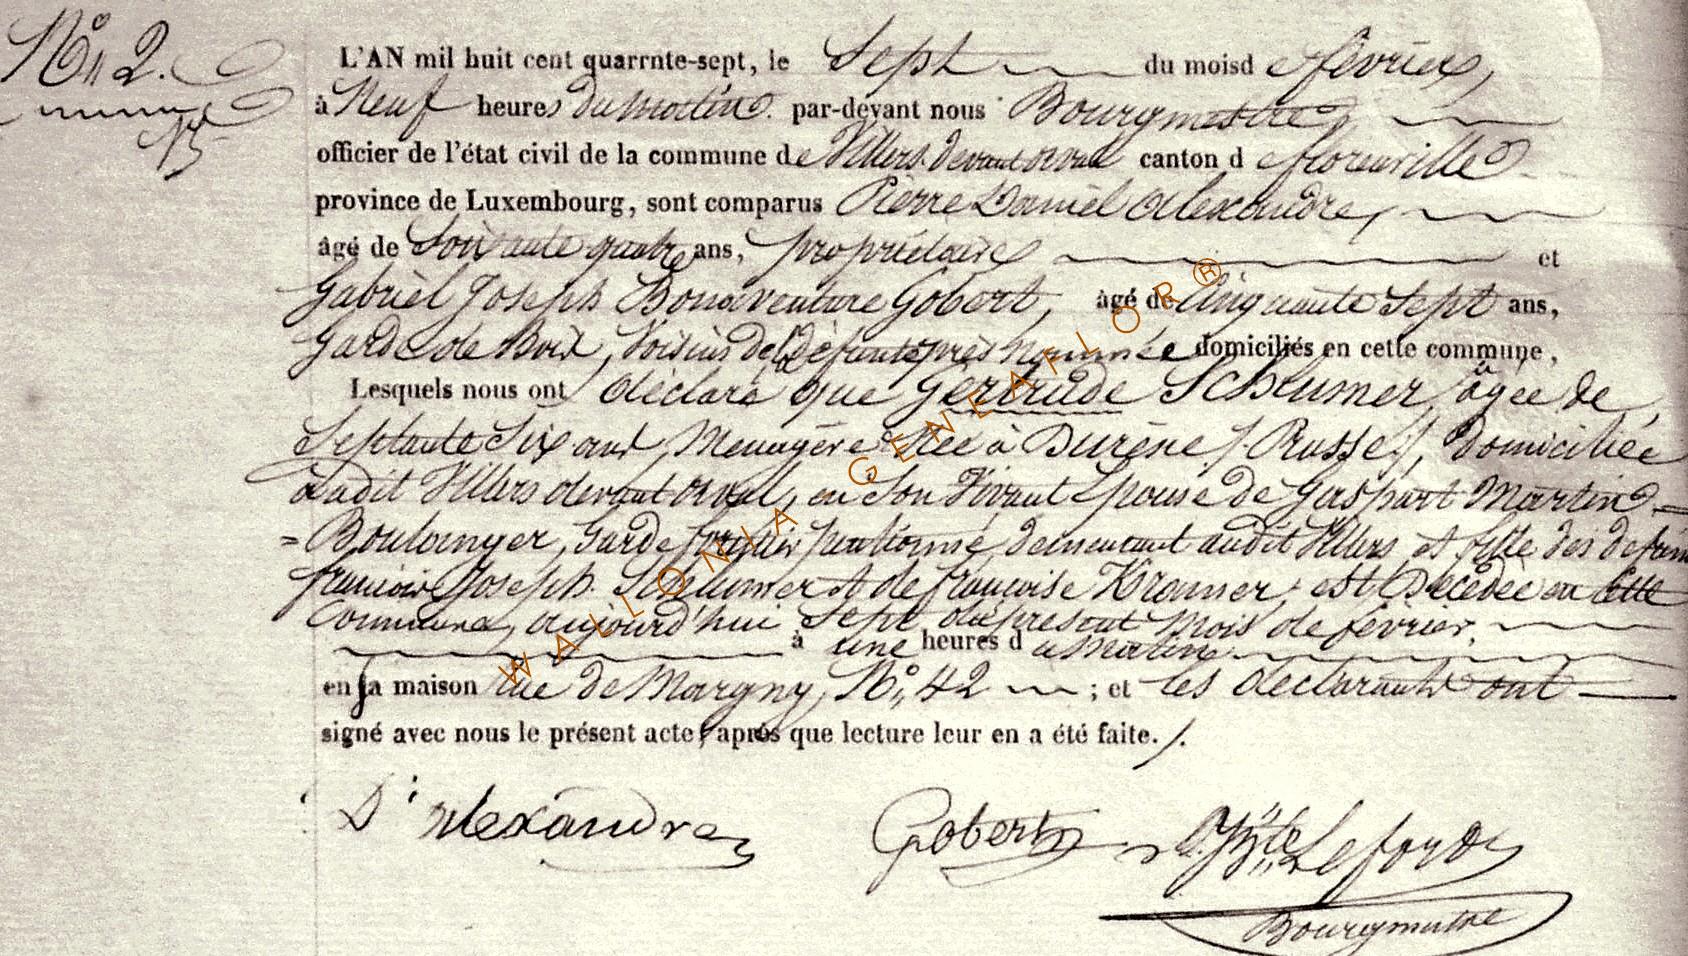 N° 2.
L'AN mil huit cent quarrnte-sept, le Sept du moisd e février,
à Neuf heures du matin. par-devant nous Bourgmestre
officier de l'état civil de la commune de Villers devant orval canton d e florenville
province de Luxembourg, sont comparus Pierre Daniel Alexandre,
âgé de Soixante quatre ans, propriétaire et
Gabriel Joseph Bonaventure Gobert, âgé de Cinquante Sept ans,
Garde de Bois, Voisins de la défunte près Nommée domiciliés en cette commune,
Lesquels nous ont déclaré que Gertrude Schlumer âgée de
Septante Six ans, Menagère Née à Durène / Prusse /, Domiciliée
audit Villers devant orval, en Son Vivant Epouse de Gaspart Martin =
= Boulanger, Garde forestier pentionné, demeurant audit Villers et fille des defunts
francois Joseph Schlumer et de françoise Kramer; est Decédée en Cette
Commune, aujourd'hui Sept du présent Mois de février,
à une heures d u Matin
en sa maison rue de Margny, N° 42 ; et les declarants ont
signé avec nous le présent acte, après que lecture leur en a été faite. /.
D. Alexandre Gobert Lefort
Bourgmestre
WALLONIA GENEAFLOR®